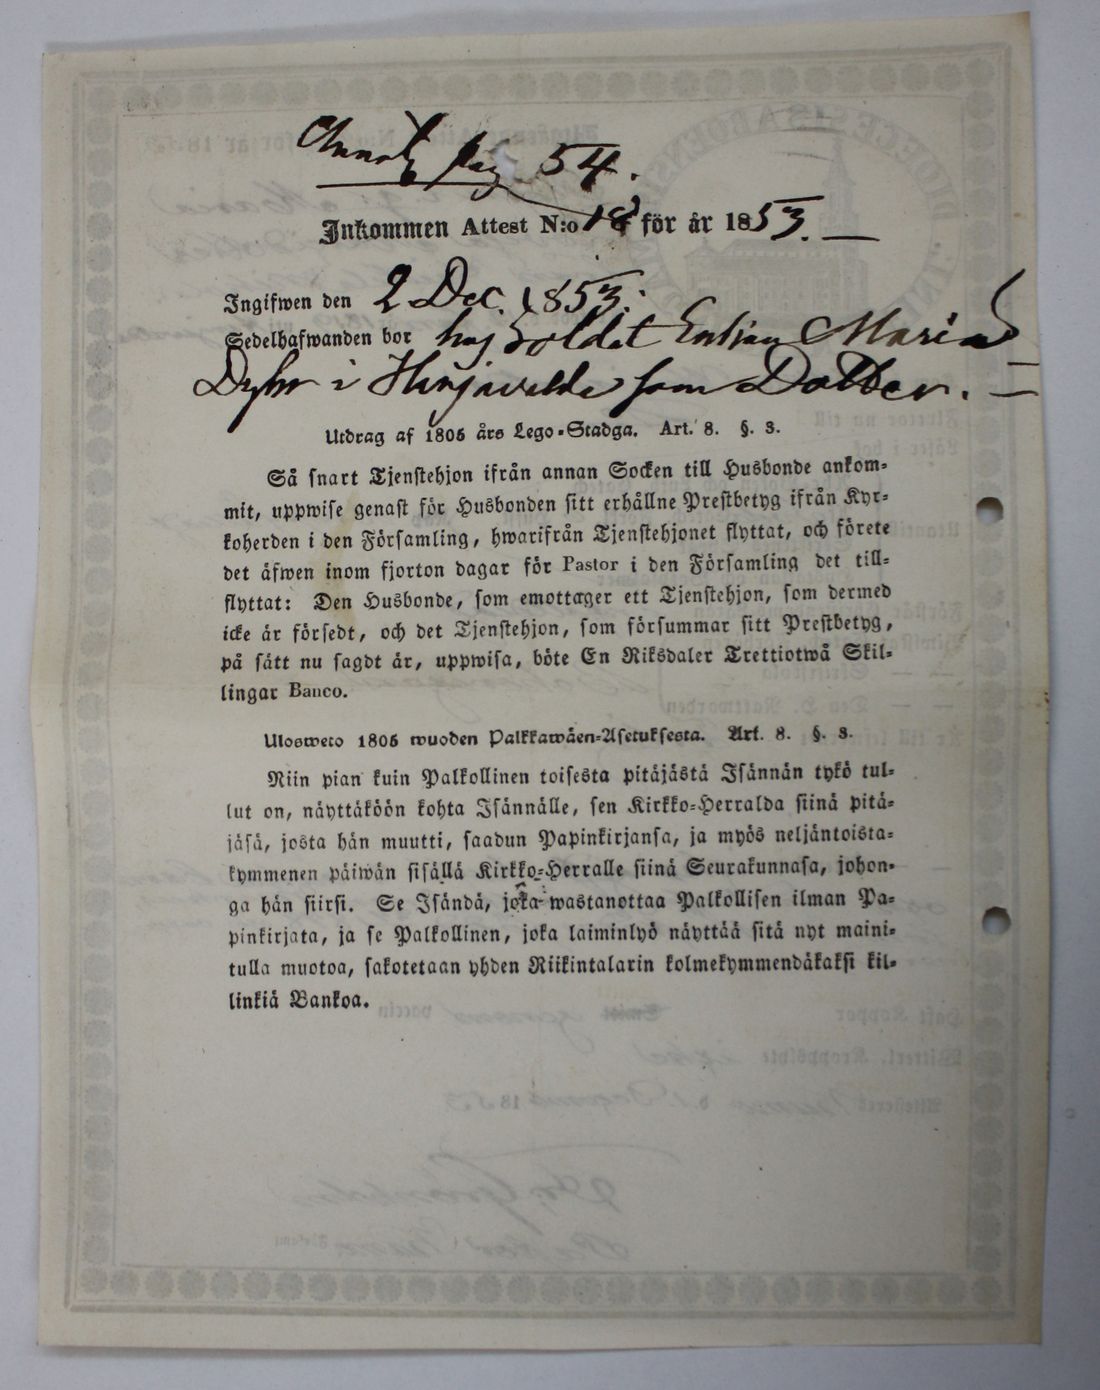 Annot. pag 54.
Inkommen Attest N:o 18 för år 1853.
Ingifwen den 2 Dec. 1853.
Sedelhafwanden bor hos Soldat Enkan Maria
i som Dotter.
Utdrag af 1805 års Lego-Stadga. Art. 8. §. 3.
Så snart Tjenstehjon ifrån annan Socken till Husbonde ankom-
mit, uppwise genast för Husbonden sitt erhållne Prestbetyg ifrån Kyr-
koherden i den Församling, hwarifrån Tjenstehjonet flyttat, och förete
det äfwen inom fjorton dagar för Pastor i den Församling det till-
flyttat: Den Husbonde, som emottager ett Tjenstehjon, som dermed
icke är försedt, och det Tjenstehjon, som försummar sitt Prestbetyg,
på sätt nu sagdt är, uppwisa, böte En Riksdaler Trettiotwå Skil-
lingar Banco.
Ulosweto 1805 wuoden Palkkawäen-Asetuksesta. Art. 8. §. 3.
Niin pian kuin Palkollinen toisesta pitäjästä Isännän tykö tul-
lut on, näyttäköön kohta Isännälle, sen Kirkko-Herralda siinä pitä-
jäsä, josta hän muutti, saadun Papinkirjansa, ja myös neljäntoista-
kymmenen päiwän sisällä Kirkko-Herralle siinä Seurakunnasa, johon-
ga hän siirsi. Se Isändä, joka wastanottaa Palkollisen ilman Pa-
pinkirjata, ja se Palkollinen, joka laiminlyö näyttää sitä nyt maini-
tulla muotoa, sakotetaan yhden Riikintalarin kolmekymmendäkaksi kil-
linkiä Bankoa.